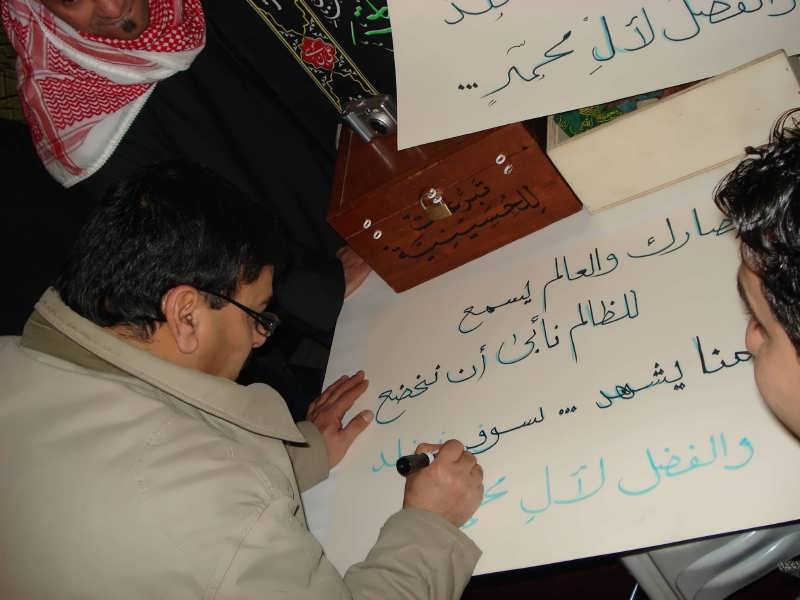 والفضل لآلِ محمدٍ ...
تبرعات
للحسينية
صارك والعالم يسمع
للظالم نأبى أن نخضع
منا يشهد ... سوف
والفضل لآلِ